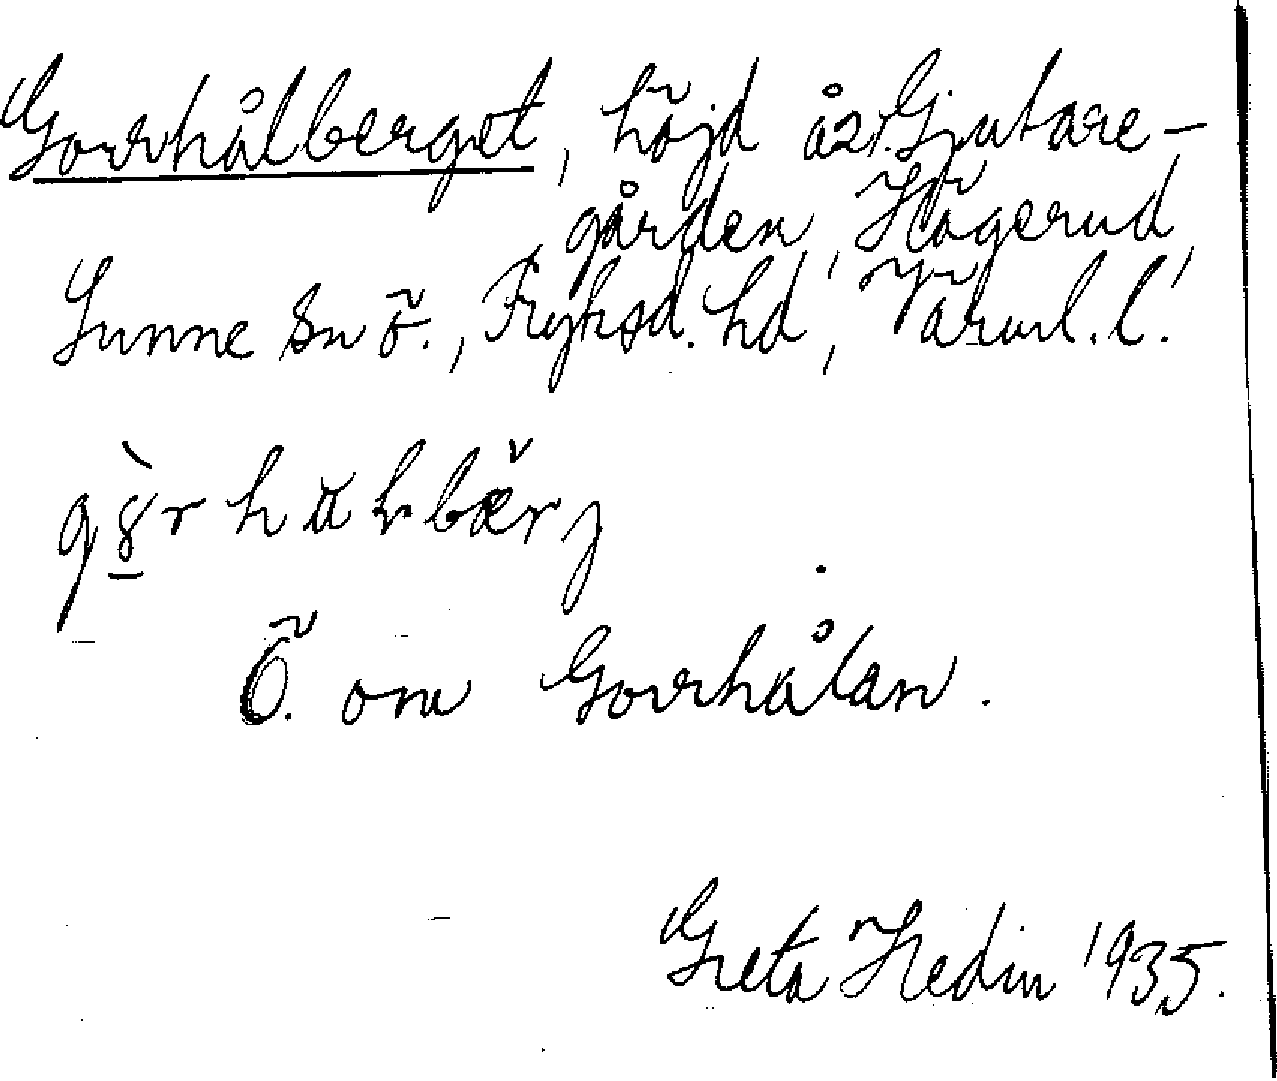 Gorrhålberget, höjd å 21. Gjutare-
gården, Högerud,
Sunne sn ö., Fryksd. hd, Värml. l.
Ö. om Gorrhålan.
Greta Hedin 1935.